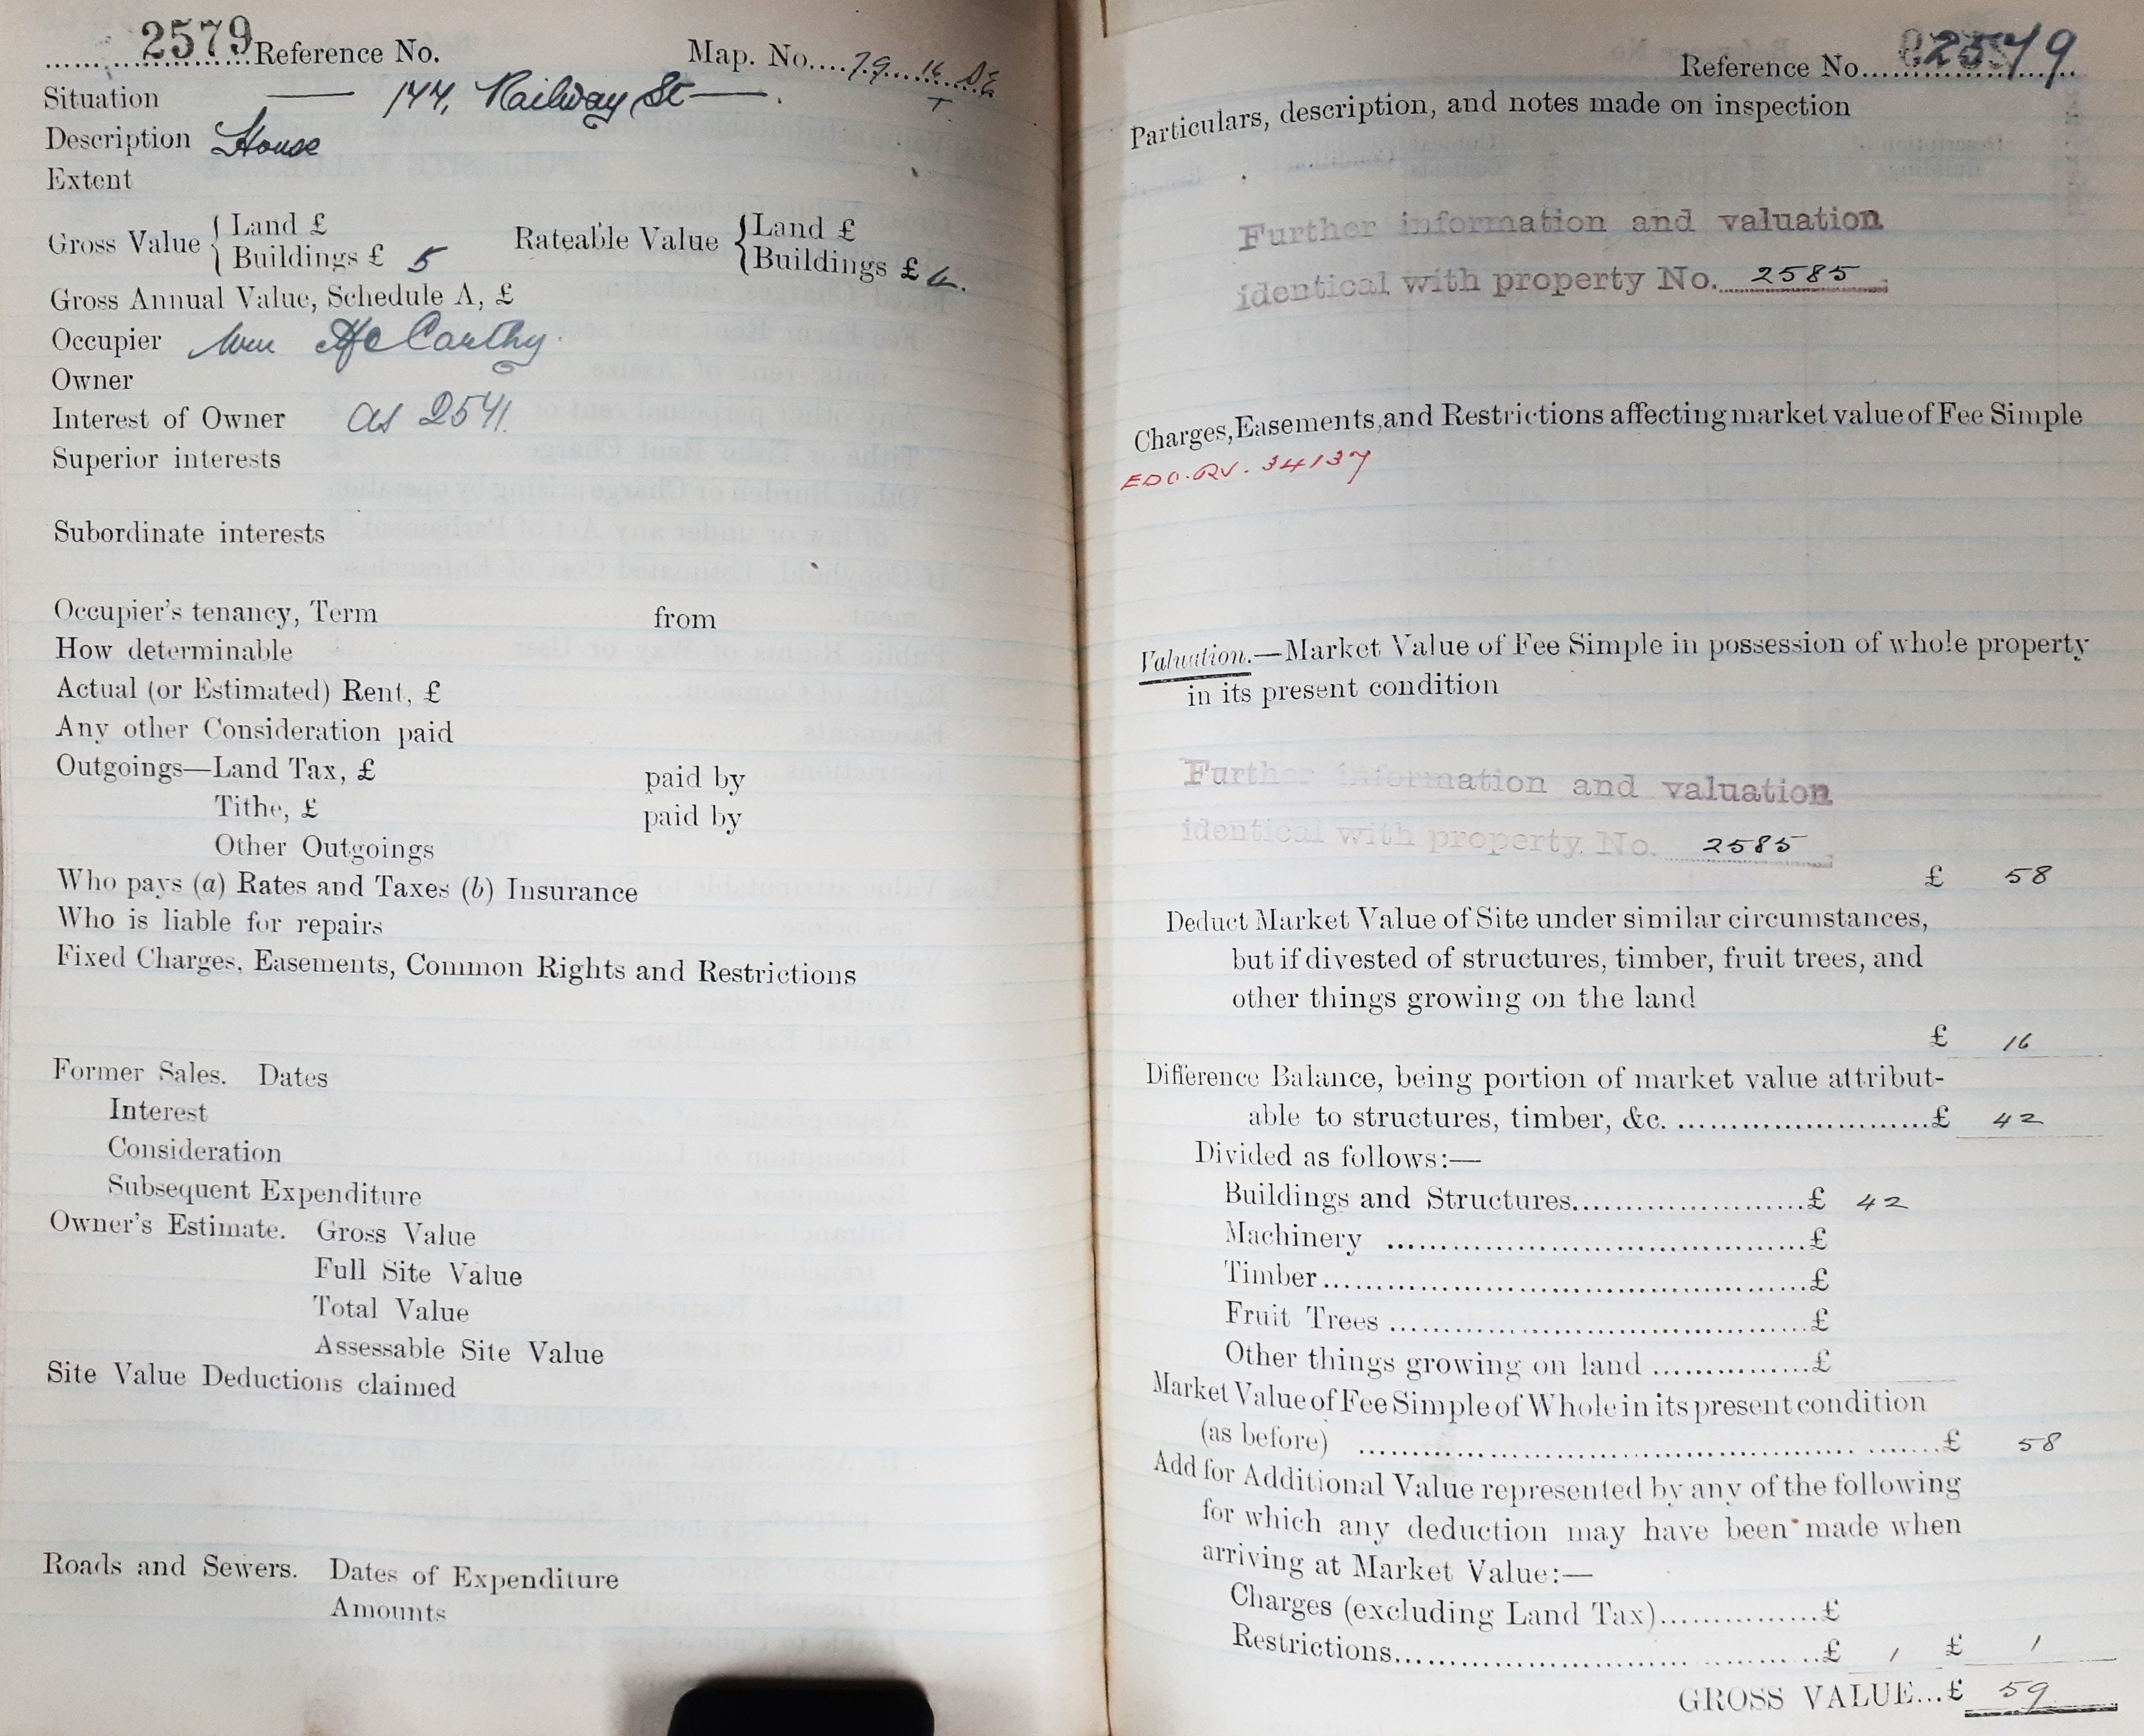 2579 Reference No. Map. No. 79. 16. SE
T.
Situation — 144, Railway St —.
Description House
Extent
Gross Value { Land £
Buildings £ 5
Rateable Value { Land £
Buildings £ 4.
Gross Annual Value, Schedule A, £
Occupier Wm McCarthy.
Owner
Interest of Owner as 2541.
Superior interests
Subordinate interests
Occupier's tenancy, Term from
How determinable
Actual (or Estimated) Rent, £
Any other Consideration paid
Outgoings—Land Tax, £ paid by
Tithe, £ paid by
Other Outgoings
Who pays (a) Rates and Taxes (b) Insurance
Who is liable for repairs
Fixed Charges, Easements, Common Rights and Restrictions
Former Sales. Dates
Interest
Consideration
Subsequent Expenditure
Owner's Estimate. Gross Value
Full Site Value
Total Value
Assessable Site Value
Site Value Deductions claimed
Roads and Sewers. Dates of Expenditure
Amounts
Reference No. 2579
Particulars, description, and notes made on inspection
Further information and valuation
identical with property No. 2585
Charges, Easements, and Restrictions affecting market value of Fee Simple
EDO.RV. 34137
Valuation.—Market Value of Fee Simple in possession of whole property
in its present condition
Further information and valuation
identical with property. No. 2585
£ 58
Deduct Market Value of Site under similar circumstances,
but if divested of structures, timber, fruit trees, and
other things growing on the land
£ 16
Difference Balance, being portion of market value attribut-
able to structures, timber, &c. ........................£ 42
Divided as follows:—
Buildings and Structures......................£ 42
Machinery ......................................£
Timber...........................................£
Fruit Trees ......................................£
Other things growing on land ...............£
Market Value of Fee Simple of Whole in its present condition
(as before) ..........................................................£ 58
Add for Additional Value represented by any of the following
for which any deduction may have been made when
arriving at Market Value:—
Charges (excluding Land Tax)..............£
Restrictions.....................................£ 1 £ 1
GROSS VALUE...£ 59